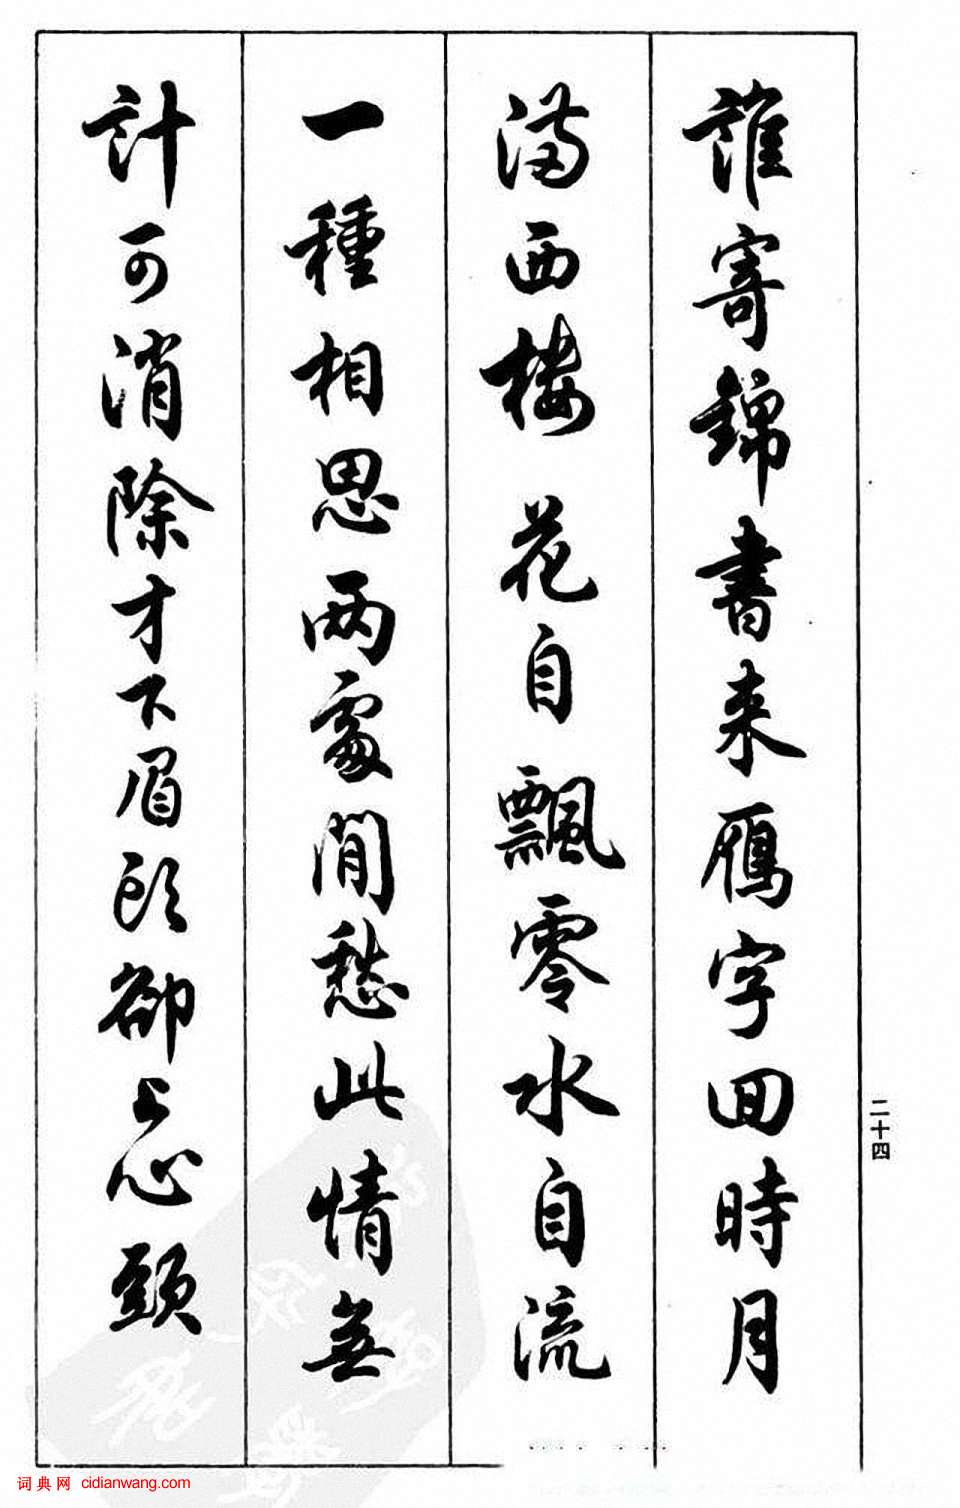 誰寄錦書来雁字回時月
滿西樓花自飄零水自流
一種相思兩處閒愁此情無
計可消除才下眉頭卻上心頭
二十四
词典网 cidianwang.com